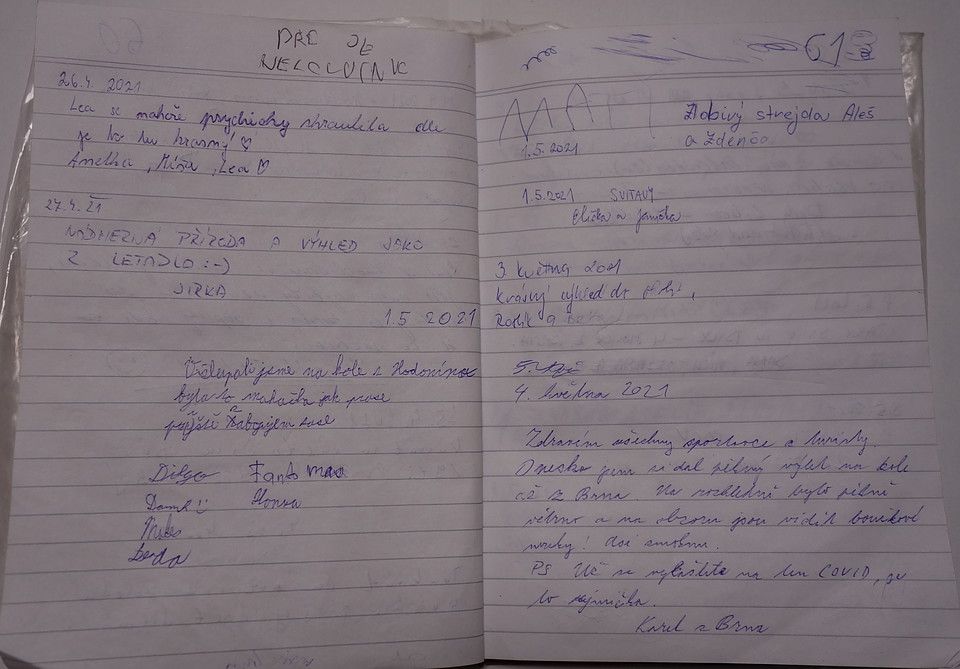 PRE JE
26.4. 2021
Lea se nahoře psychicky zhroutila ale
je to tu krásný! ♡
Anetka, Míša, Lea ♡
27.4. 21
NÁDHERNÁ PŘÍRODA A VÝHLED JAKO
Z LETADLO :-)
JIRKA
1.5 2021
Vyšlapali jsme na kole z Hodonína
byla to makačka jak prase
příště zabijem zase
Diego Fantomas
Honza
61
MA
Zlobivý strejda Aleš
a Zdenča
1.5.2021
1.5.2021 SVITAVY
Eliška a Janička
3. května 2021
Krásný výhled do
4. května 2021
Zdravím všechny sportovce a turisty.
Dneska jsem si dal pěkný výlet na kole
až z Brna. Na rozhledně bylo pěkně
větrno a na obzoru jsou vidět bouřkové
mraky! Asi zmoknu.
PS Už se vykašlete na ten COVID, je
to rýmička.
Karel z Brna